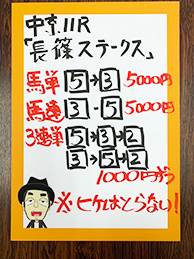 中京11R
「長篠ステークス」
馬単 5→3 5000円
馬連 3-5 5000円
3連単 5→3→2
3→5→2
1000円ずつ
※ヒケはとらない!